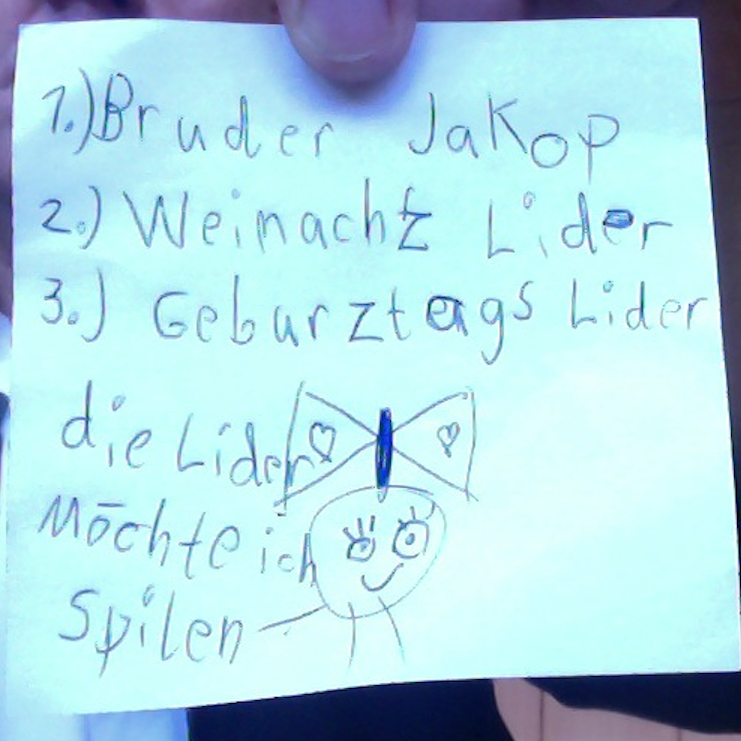 1.) Bruder Jakop
2.) Weinachtz Lider
3.) Geburztags Lider
die Lider
Möchte ich
Spilen